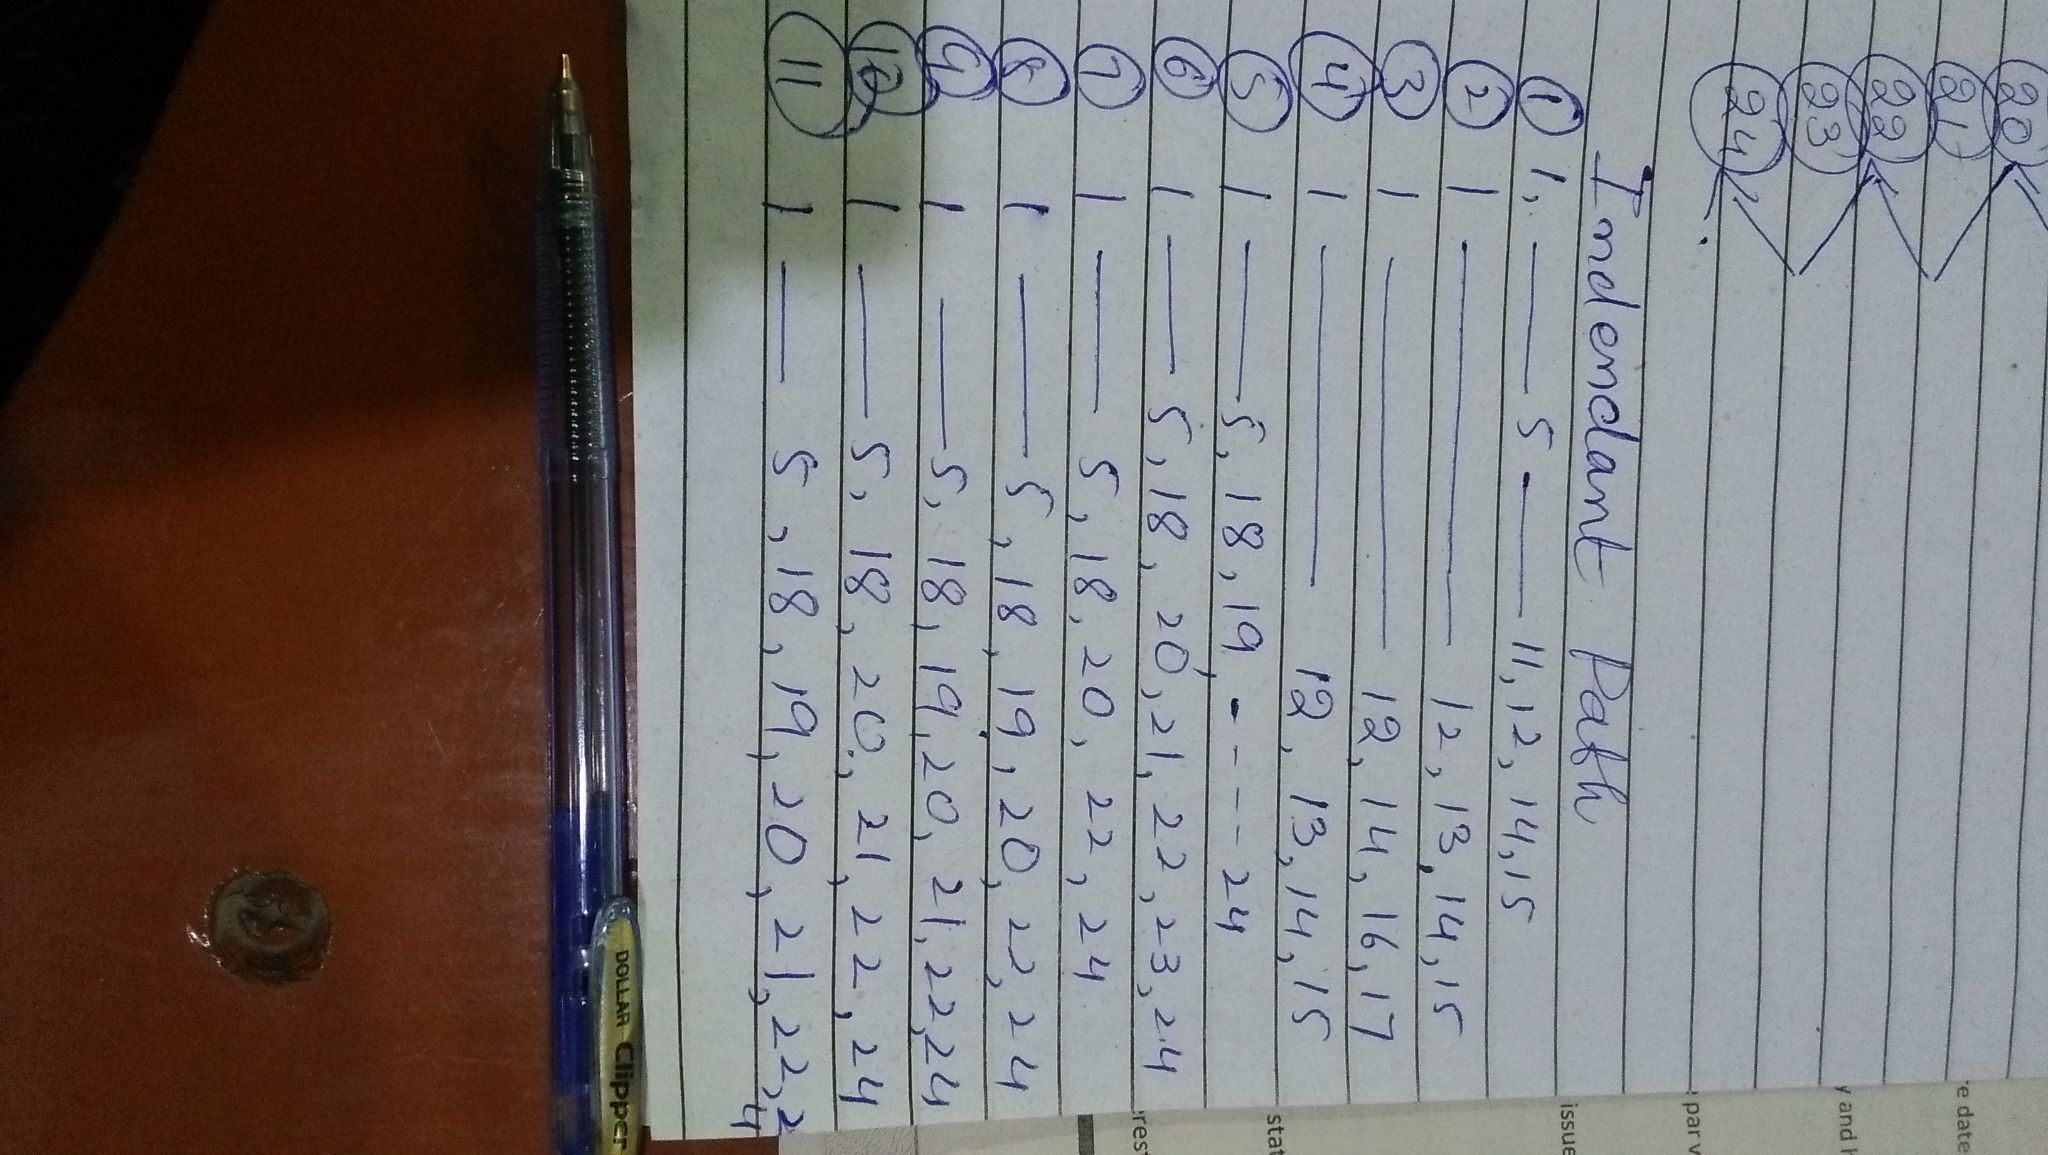 20
21
22
23
24
Indendant Path
1 1, — 5 - — 11, 12, 14, 15
2 1 — 12, 13, 14, 15
3 1 — 12, 14, 16, 17
4 1 — 12, 13, 14, 15
5 1 — 5, 18, 19, - - - - 24
6 1 — 5, 18, 20, 21, 22, 23, 24
7 1 — 5, 18, 20, 22, 24
8 1 — 5, 18, 19, 20, 22, 24
9 1 — 5, 18, 19, 20, 21, 22, 24
10 1 — 5, 18, 20, 21, 22, 24
11 1 — 5, 18, 19, 20, 21, 22, 2
4
DOLLAR Clipper
re date
y and
par
issue
stat
rest